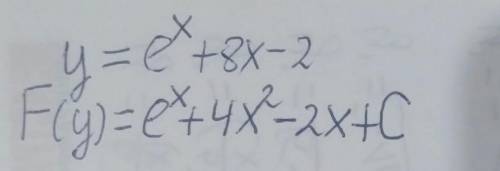 y = eˣ + 8x - 2
F(y) = eˣ + 4x² - 2x + C